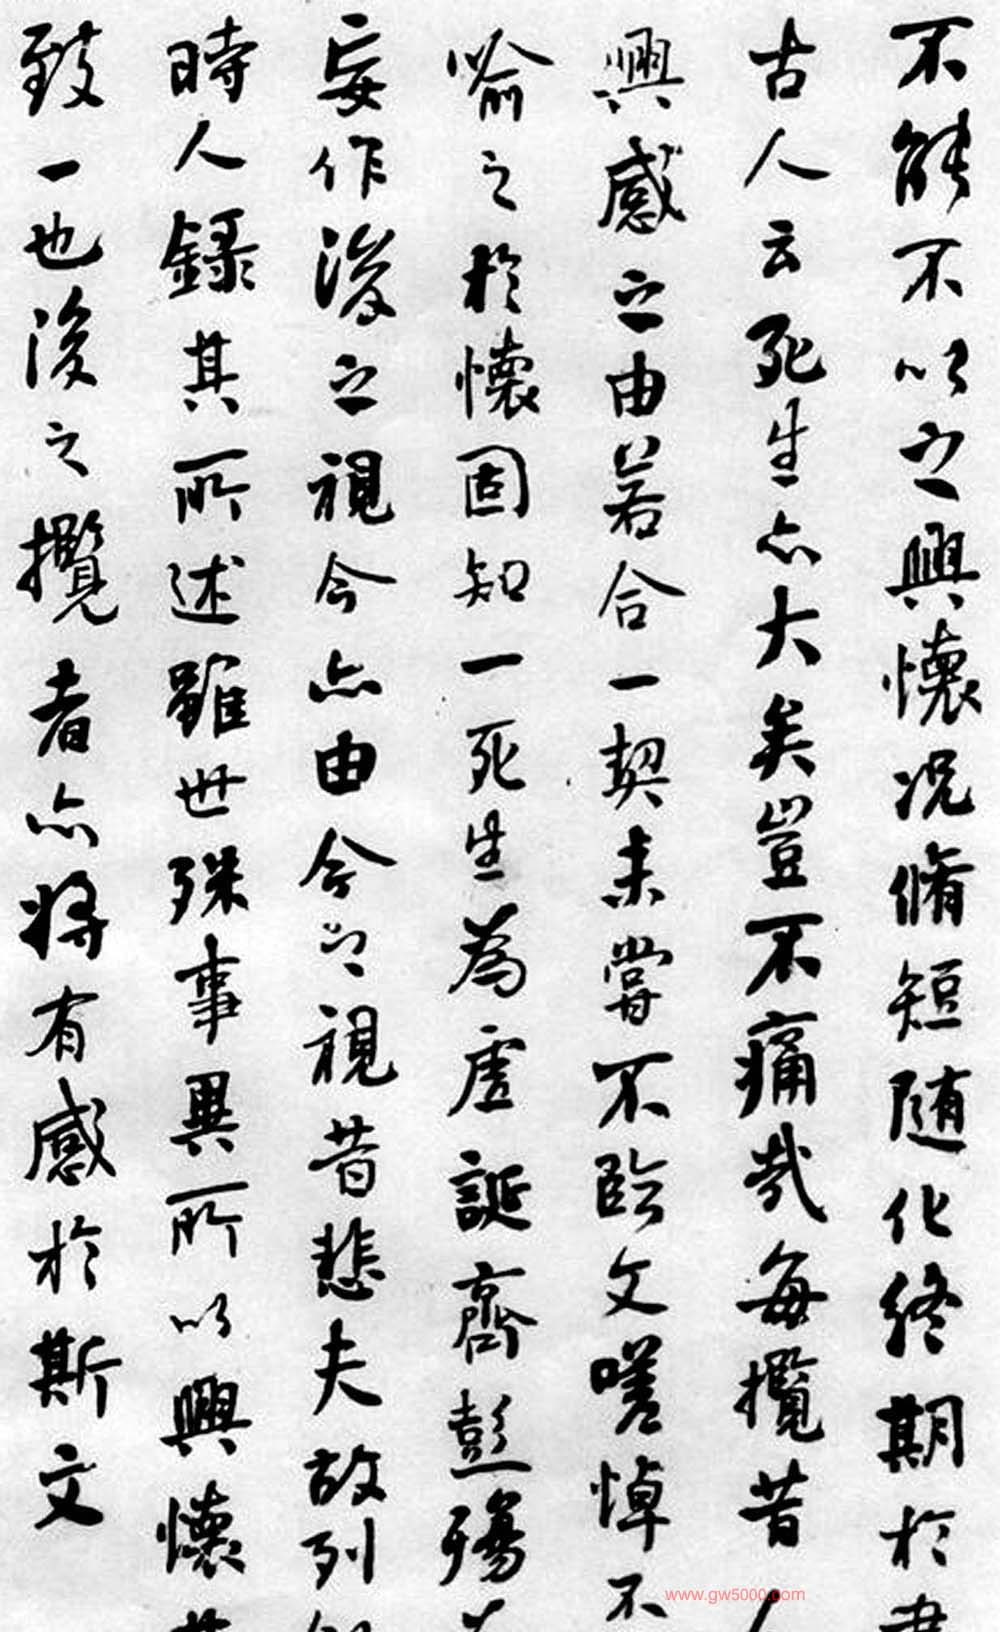 不能不以之興懷况脩短随化終期於
古人云死生亦大矣豈不痛哉每攬昔
興感之由若合一契未嘗不臨文嗟悼不
喻之於懷固知一死生為虛誕齊彭殤
妄作後之視今亦由今之視昔悲夫故列
時人錄其所述雖世殊事異所以興懷
致一也後之攬者亦將有感於斯文
www.gw5000.com